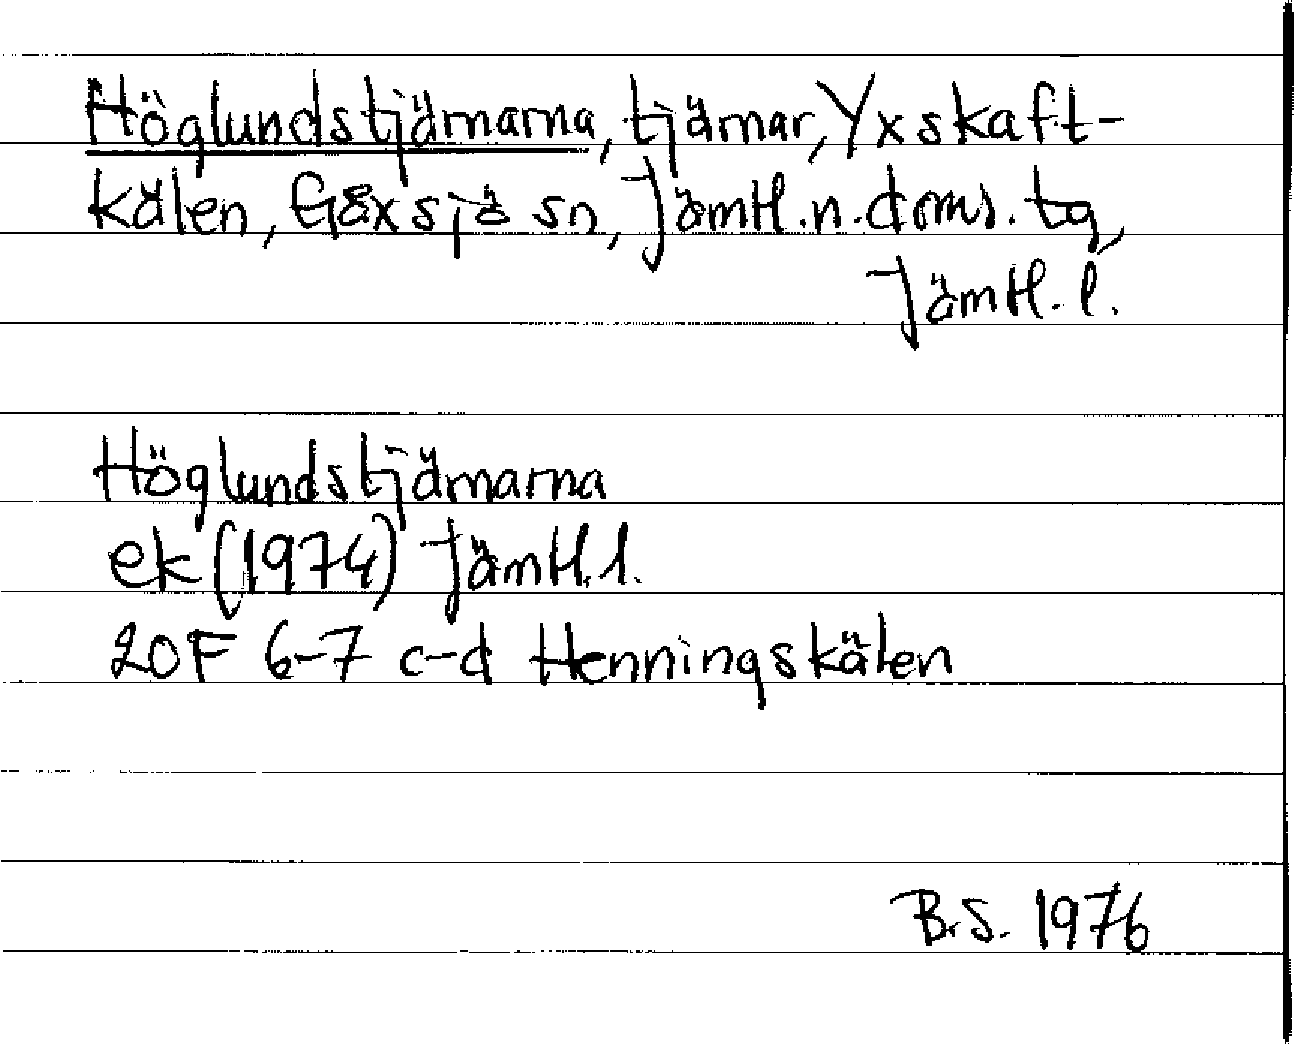 Höglundstjärnarna, tjärnar, Yxskaft-
kälen, Gåxsjö sn, Jämtl.n.doms.tg,
Jämtl.l.
Höglundstjärnarna
ek (1974) Jämtl.l.
20F 6-7 c-d Henningskälen
B.S. 1976